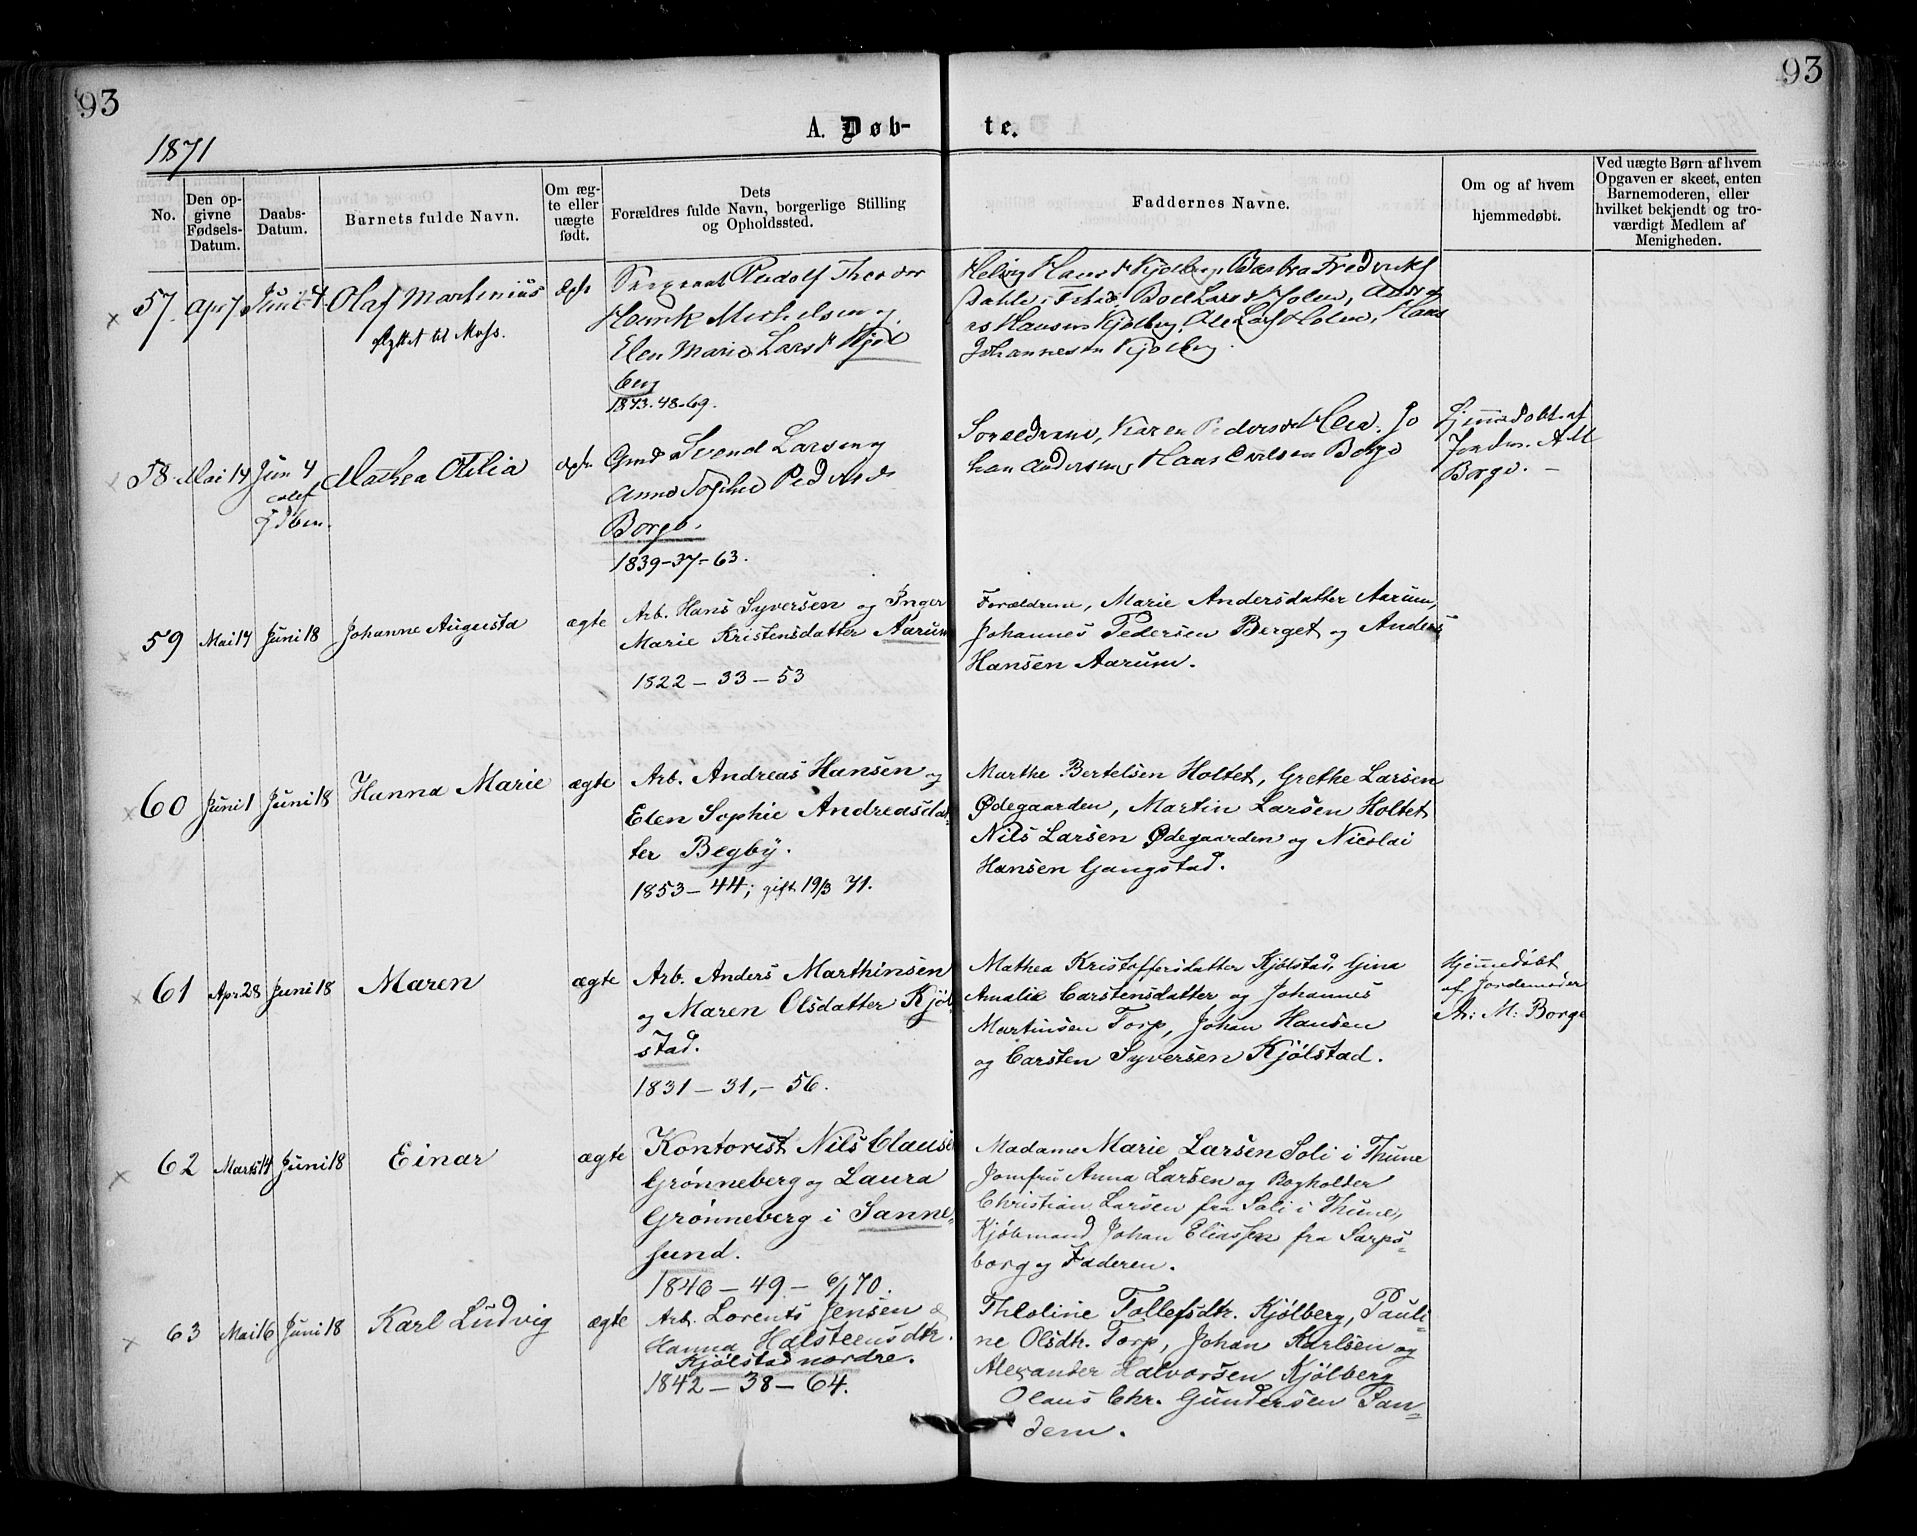 93
93
1871
A. Døb-
te.
No.
Den op-
givne
Fødsels-
Datum.
Daabs-
Datum.
Barnets fulde Navn.
Om æg-
te eller
uægte
født.
Dets
Forældres fulde Navn, borgerlige Stilling
og Opholdssted.
Faddernes Navne.
Om og af hvem
hjemmedøbt.
Ved uægte Børn af hvem
Opgaven er skeet, enten
Barnemoderen, eller
hvilket bekjendt og tro-
værdigt Medlem af
Menigheden.
57. Apr 7 Juni 4 Olaf Martinius
flyttet til Moss.
Rudolf Theodor
Henrik Michelsen og
Elen Marie Larsd Kjøl
berg
1843. 48-69.
Helvig Hansd Kjølberg
Dahle Boel Larsd Holen,
rs Hansen Kjølberg, Ole Holen, Hans
Johannesen Kjølberg.
58 Mai 14 Jun 4 Mathea Otilia
Svend Larsen og
Anne Sophie Pedersd
Borge.
1839-37-63.
Karen Pedersd Jo
han Andersen, Hans Borge
af
A M
Borge.
59 Mai 14 Juni 18 Johanne Augusta ægte
Arb. Hans Syversen og Inger
Marie Kristensdatter Aarum
1822 - 33 - 53
Forældrene, Marie Andersdatter Aarum,
Johannes Pedersen Berget og Anders
Hansen Aarum.
60 Juni 1 Juni 18 Hanna Marie ægte
Arb. Andreas Hansen og
Elen Sophie Andreasdat-
ter Begby.
1853 - 44; gift 19/3 71.
Marthe Bertelsen Holtet, Grethe Larsen
Ødegaarden, Martin Larsen Holtet
Nils Larsen Ødegaarden og Nicolai
Hansen Gangstad.
61 Apr 28 Juni 18 Maren ægte
Arb. Anders Marthinsen
og Maren Olsdatter Kjöl-
stad.
1831 - 31, - 56.
Mathea Kristoffersdatter Kjölstad, Gina
Amalie Carstensdatter og Johannes
Martinsen Torp, Johan Hansen
og Carsten Syversen Kjölstad.
Hjemmedöbt
af Jordemoder
A: M: Borge
62 Marts 14 Juni 18 Einar ægte
Kontorist Nils Clausen
Grönneberg og Laura
Grönneberg i Sanne-
sund.
1846 - 49 - 6/1 70.
Madame Marie Larsen Soli i Thune
Jomfru Anna Larsen og Bogholder
Christian Larsen fra Soli i Thune,
Kjöbmand Johan Eliassen fra Sarps-
borg og Faderen.
63 Mai 6 Juni 18 Karl Ludvig ægte
Arb. Lorents Jensen &
Hanna Halsteensdtr.
Kjölstad nordre.
1842 - 38 - 64.
Theoline Tollefsdtr. Kjölberg, Pauli-
ne Olsdtr. Torp, Johan Karlsen og
Alexander Halvorsen Kjölberg
Olaus Chr. Gundersen San-
dem.